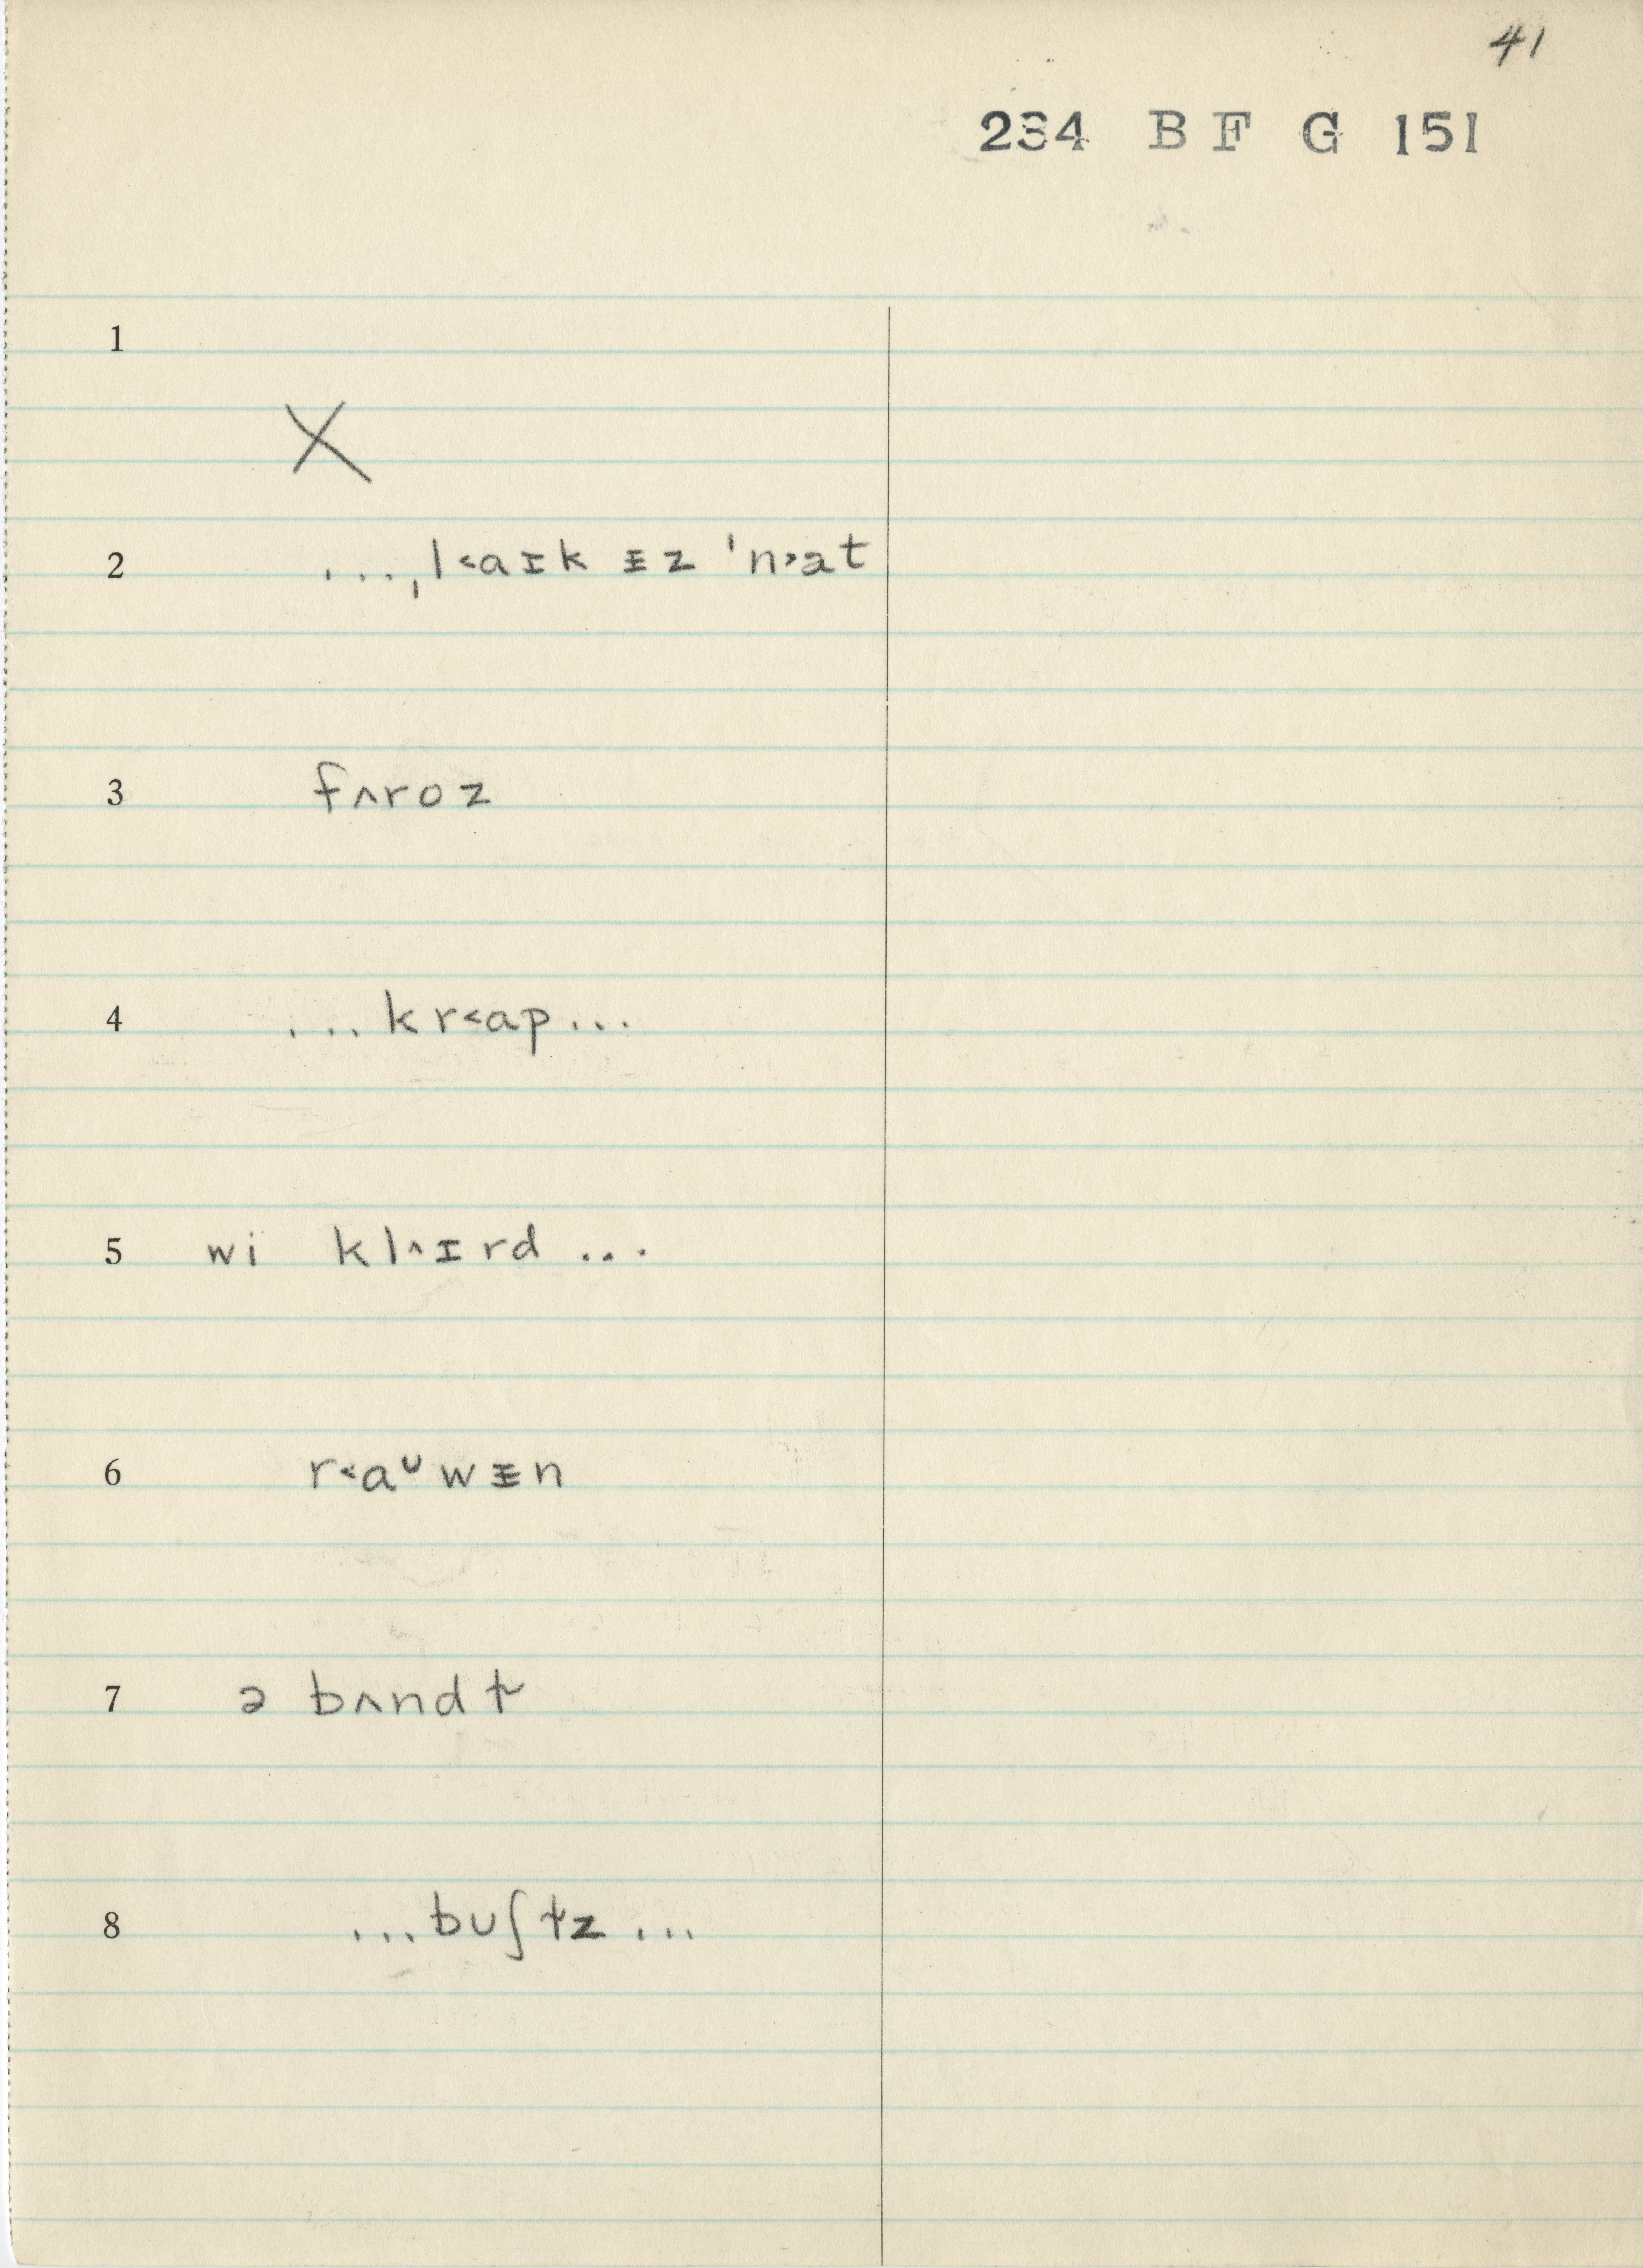 41
234 B F G 151
1
X
2 ...ˌl˂aɪk ᵻz ˈn˃ət
3 fʌroz
4 ...kr˂ap...
5 wi kl˄ɪrd ...
6 r˂aᴜwᵻn
7 ə bʌndɫ
8 ...buʃɫz ...